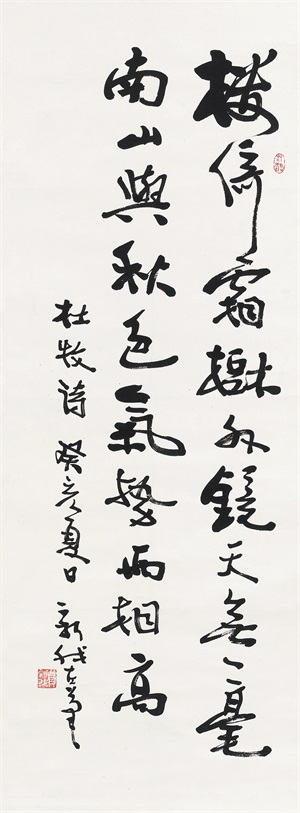 樓倚霜樹外鏡天無一毫
南山與秋色氣勢兩相高
杜牧詩 癸亥夏日 新我左筆